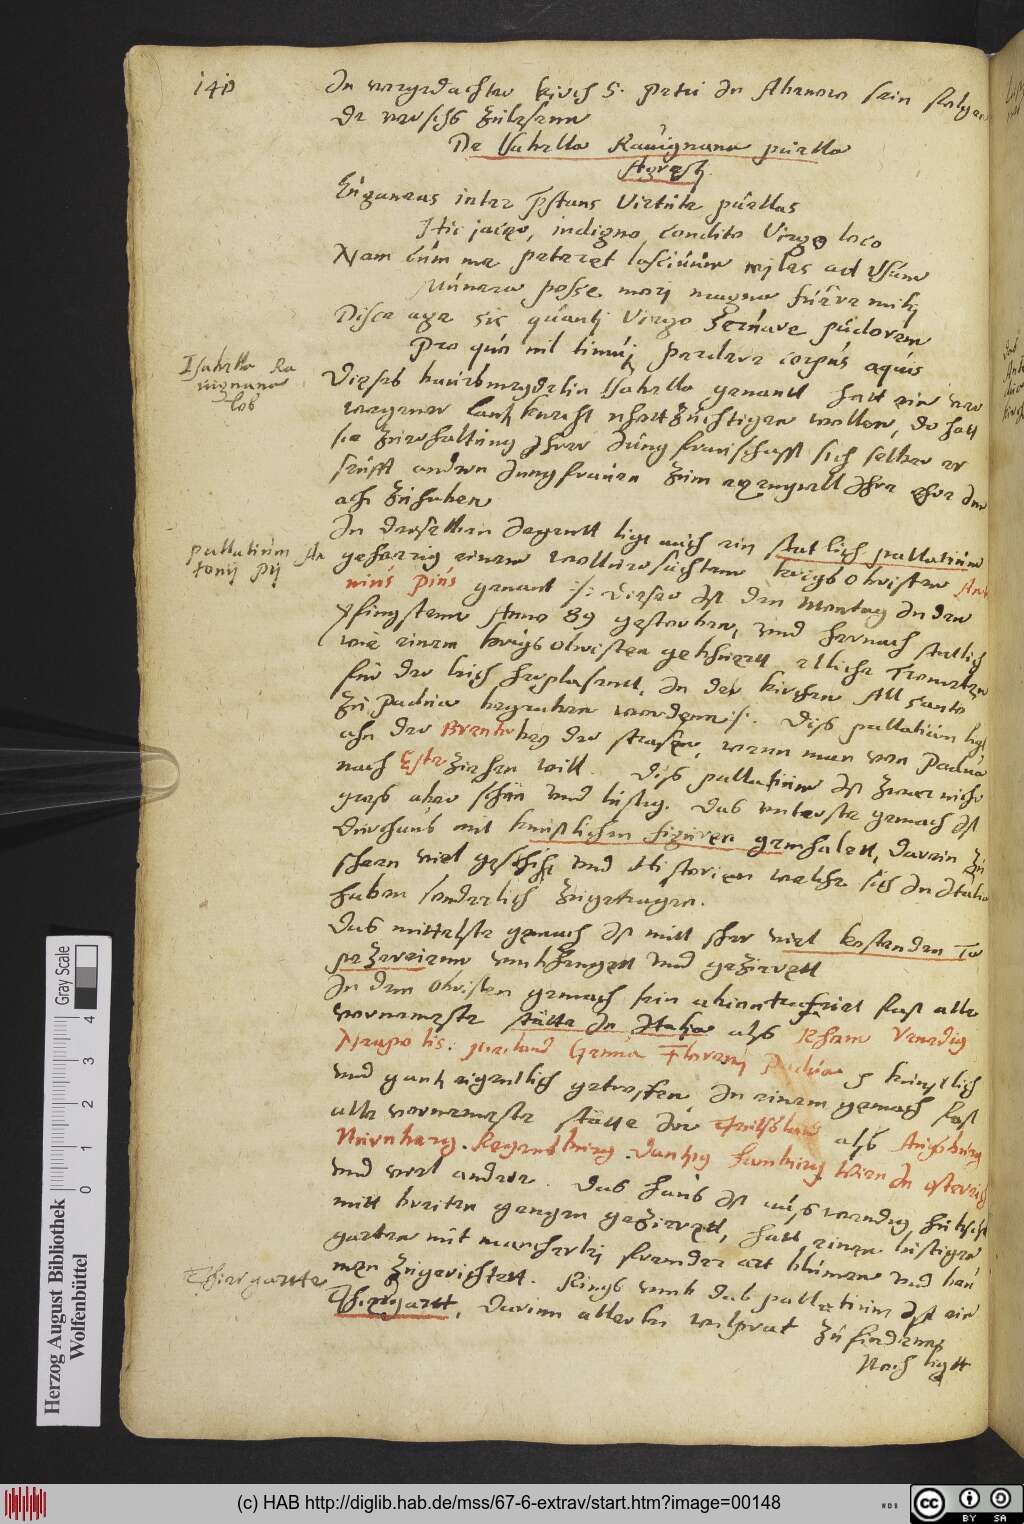 140
In vorgedachter kirch S. Petri In Abanoro sein folgen
De Versch Zulesenn
De Isabella Rauignana puella
Agresti
Euganeas inter Prestans Virtute puellas
Hic jaceo, indigno condita Virgo loco
Nam cum me peteret lasciuum miles ad Usum
Munera posse mori magna fuêre mihi
Disce age sic quanti Virgo seruare pudorem
Pro quo nil timui perdere corpus aquis
Isabella Ra
uignana
lob
Dieses baursmegdelin Isabella genantt hatt ein ver
wegener lantzknecht nhottzuchtigen wollen, do hatt
sie Zuerhaltung Ihrer Jungfrauschafft sich selber er
seufft andern Jungfrauen Zum exempell Ihre ehre In
ach Zuhaben
pallatium An
tonij Pij
In derselben gegentt ligt auch ein stattlich pallatium
gehorig einem kriegs Obristen Anto
nius Pius genant :/: dieser Ist den Montag In den
Pfingstenn Anno 89 gestorben, vnd hernach stattlich
wie einem kriegs obristen gebhürett etliche Trometen
für der leich herplasent, In der kirchen All Santo
Zu Padua begraben wordenn :/: Diss pallatium ligt
ahn der Brenta beg der strasen, wenn man von Padua
nach Este Ziehen will. Diss pallatium Ist Zwar nicht
gros aber schön vnd lustig. Das vnterste gemach Ist
durchaus mit kunstlichen figuren gemhalett, darein Zu
sehen viel geschicht vnd Historien welche sich In Italia
haben sonderlich Zugetragen.
Das mittelste gemach Ist mitt sher viel kostenden Ta
pezereienn vmbhengett vnd gezierett
In dem Obristen gemach sein abkontrafeiet fast alle
vornemeste stätte In Italia als Rhom Venedig
Neapolis. Meiland Genua Florenz Padua kunstlich
vnd gantz eigentlich getroffen, In einem gemach fast
alle vornemeste stätte der als Augspurg
Nürnberg. Regensburg. Dantzig Hamburg Wien In osterreich
vnd viel andere. Das haus Ist auss wendig hubsch
mitt breiten gengen gezierett, hatt einen lustigen
garten mit mancherlej frembder art blumen vnd beu
men Zugerichtett. Rings vmb das pallatium Ist ein
Thiergartte
Thiergartt, Darinn allerlei wilprat Zufindenn
Noch ligtt
Herzog August Bibliothek
Wolfenbüttel
0 1 2 3 4
Gray Scale
(c) HAB http://diglib.hab.de/mss/67-6-extrav/start.htm?image=00148
WDB
BY SA